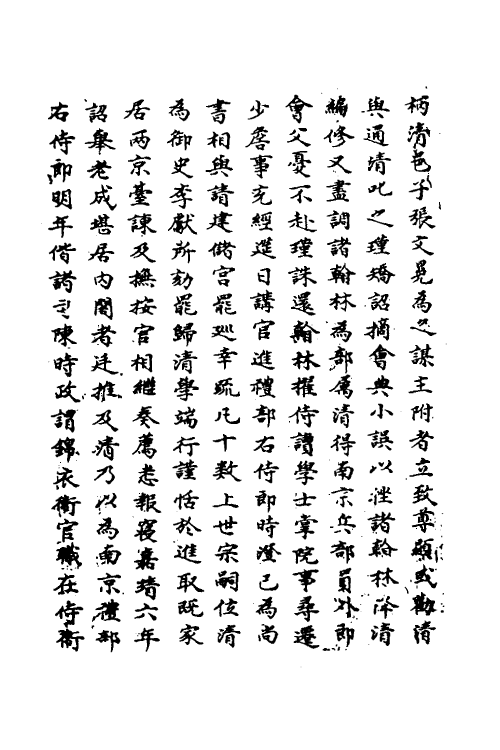 柄清邑子張文冕為之謀主附者立致尊顯或勸清
與通清叱之瑾矯詔摘會典小誤以挫諸翰林降清
編修又盡調諸翰林為部屬清得南京兵部員外郎
會父憂不赴瑾誅還翰林擢侍讀學士掌院事尋遷
少詹事充經筵日講官進禮部右侍郎時澄已為尚
書相與請建儲宮罷巡幸疏凡十數上世宗嗣位清
為御史李獻所劾罷歸清學端行謹恬於進取既家
居兩京臺諫及撫按官相繼奏薦悉報寢嘉靖六年
詔舉老成堪居內閣者廷推及清乃以為南京禮部
右侍郎明年偕諸司陳時政謂錦衣衛官職在侍衛